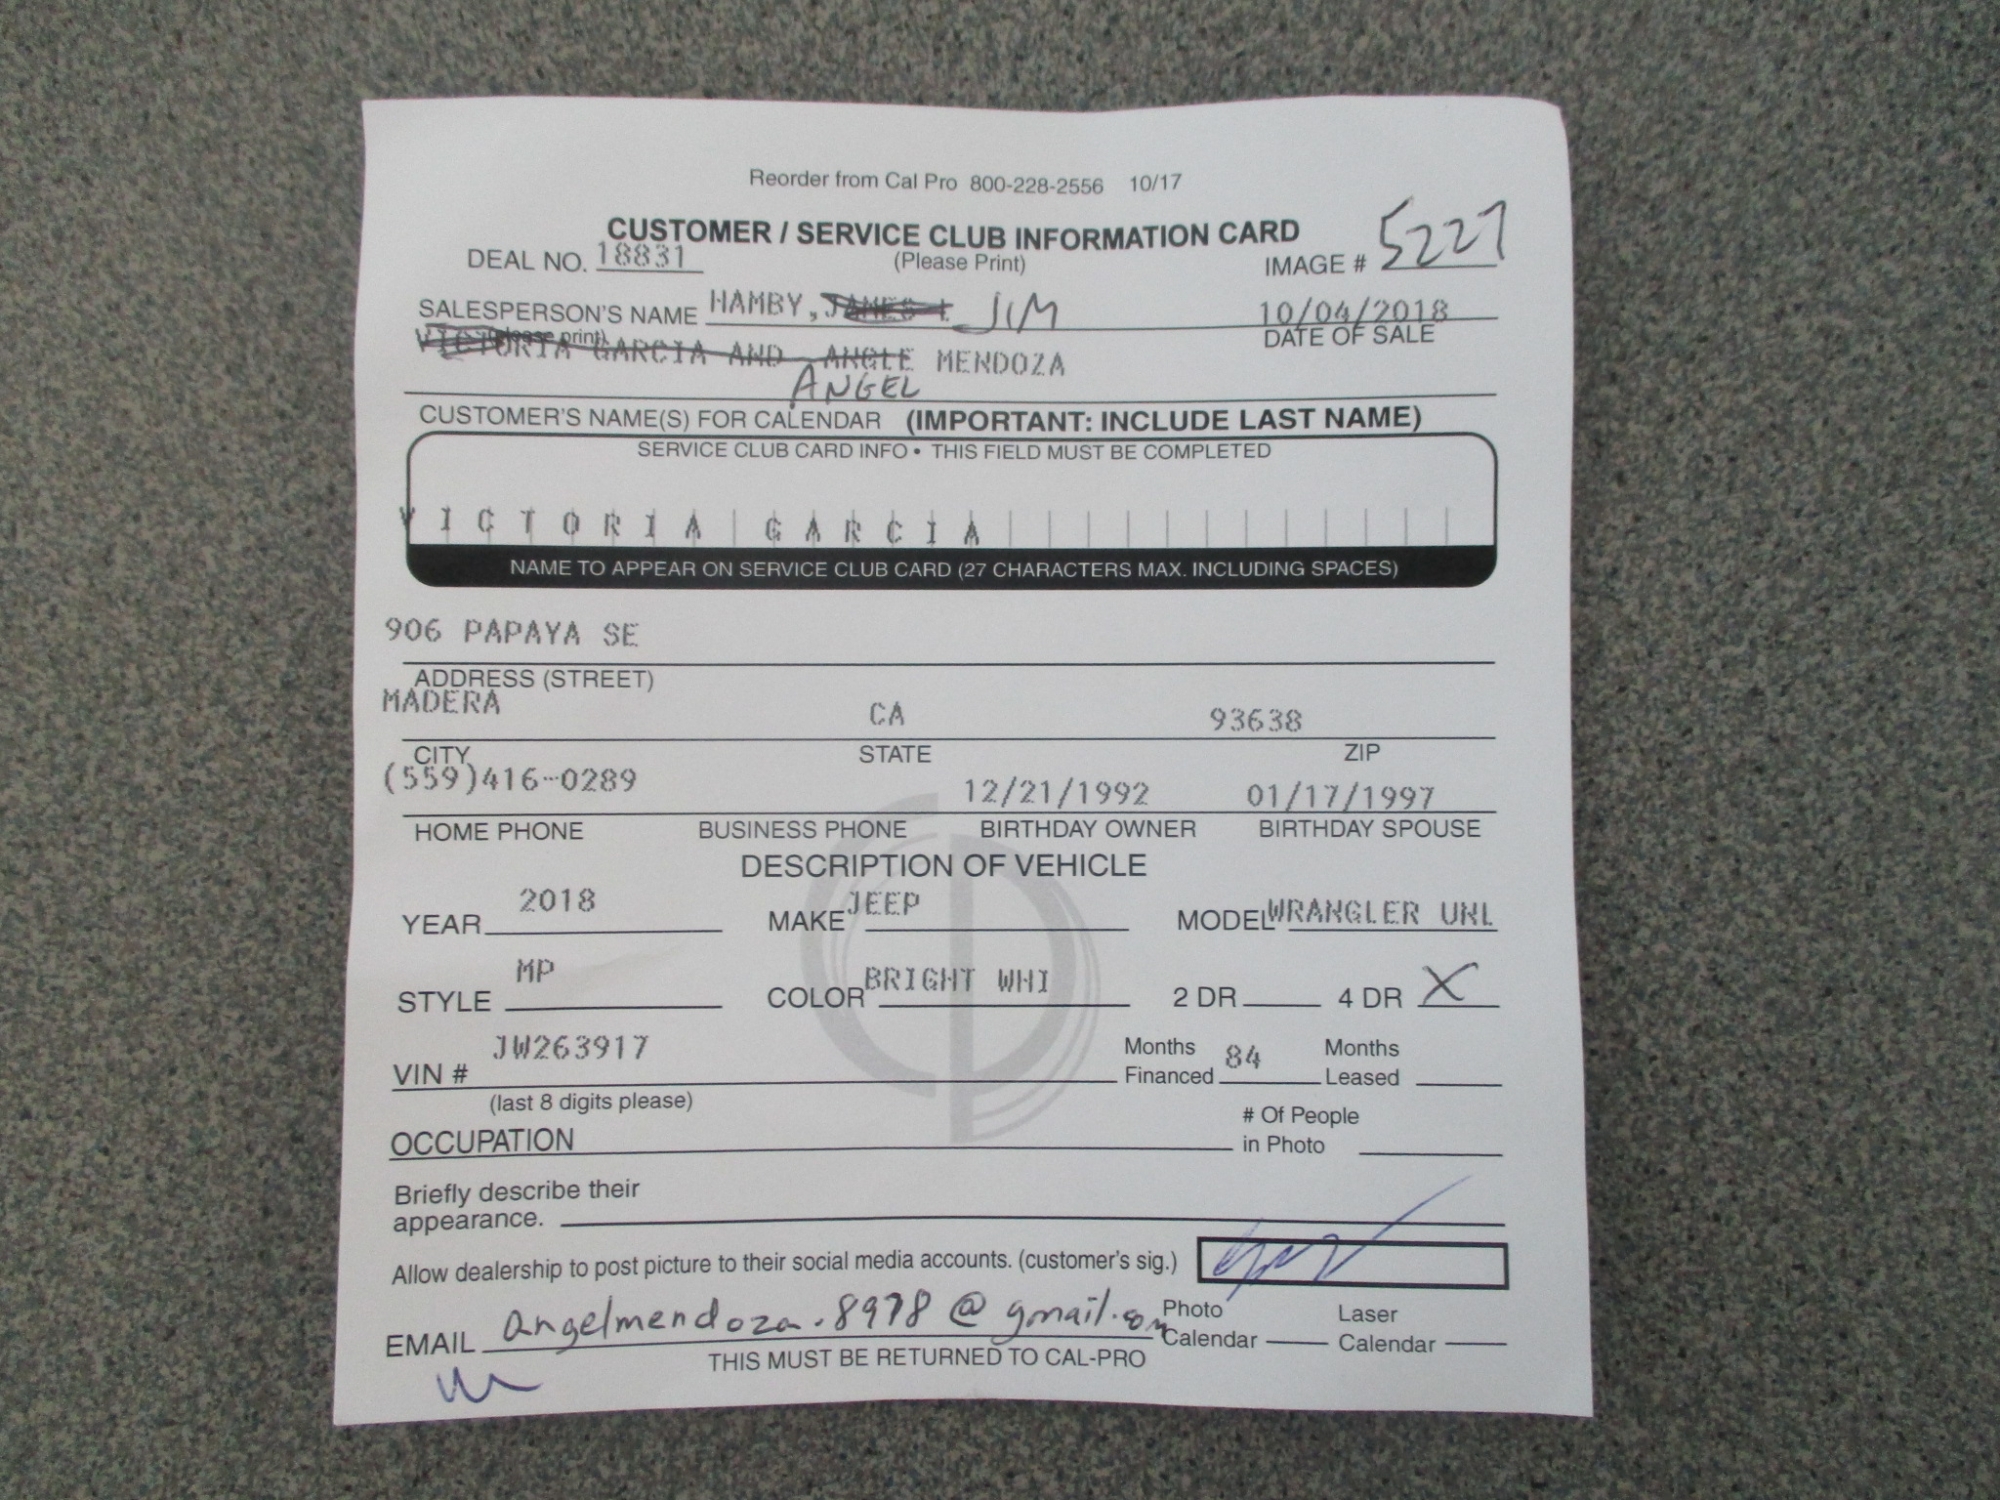 Reorder from Cal Pro 800-228-2556 10/17
CUSTOMER / SERVICE CLUB INFORMATION CARD
DEAL NO. 18831 (Please Print) IMAGE # 5227
SALESPERSON'S NAME HAMBY, JAMES L JIM 10/04/2018
(please print) DATE OF SALE
VICTORIA GARCIA AND ANGLE MENDOZA
ANGEL
CUSTOMER'S NAME(S) FOR CALENDAR (IMPORTANT: INCLUDE LAST NAME)
SERVICE CLUB CARD INFO • THIS FIELD MUST BE COMPLETED
VICTORIA GARCIA
NAME TO APPEAR ON SERVICE CLUB CARD (27 CHARACTERS MAX. INCLUDING SPACES)
906 PAPAYA SE
ADDRESS (STREET)
MADERA CA 93638
CITY STATE ZIP
(559)416-0289 12/21/1992 01/17/1997
HOME PHONE BUSINESS PHONE BIRTHDAY OWNER BIRTHDAY SPOUSE
DESCRIPTION OF VEHICLE
YEAR 2018 MAKE JEEP MODEL WRANGLER UNL
STYLE MP COLOR BRIGHT WHI 2 DR 4 DR X
VIN # JW263917 Months Financed 84 Months Leased
(last 8 digits please)
OCCUPATION # Of People in Photo
Briefly describe their
appearance.
Allow dealership to post picture to their social media accounts. (customer's sig.)
EMAIL angelmendoza.8978@gmail.com Photo Calendar Laser Calendar
THIS MUST BE RETURNED TO CAL-PRO